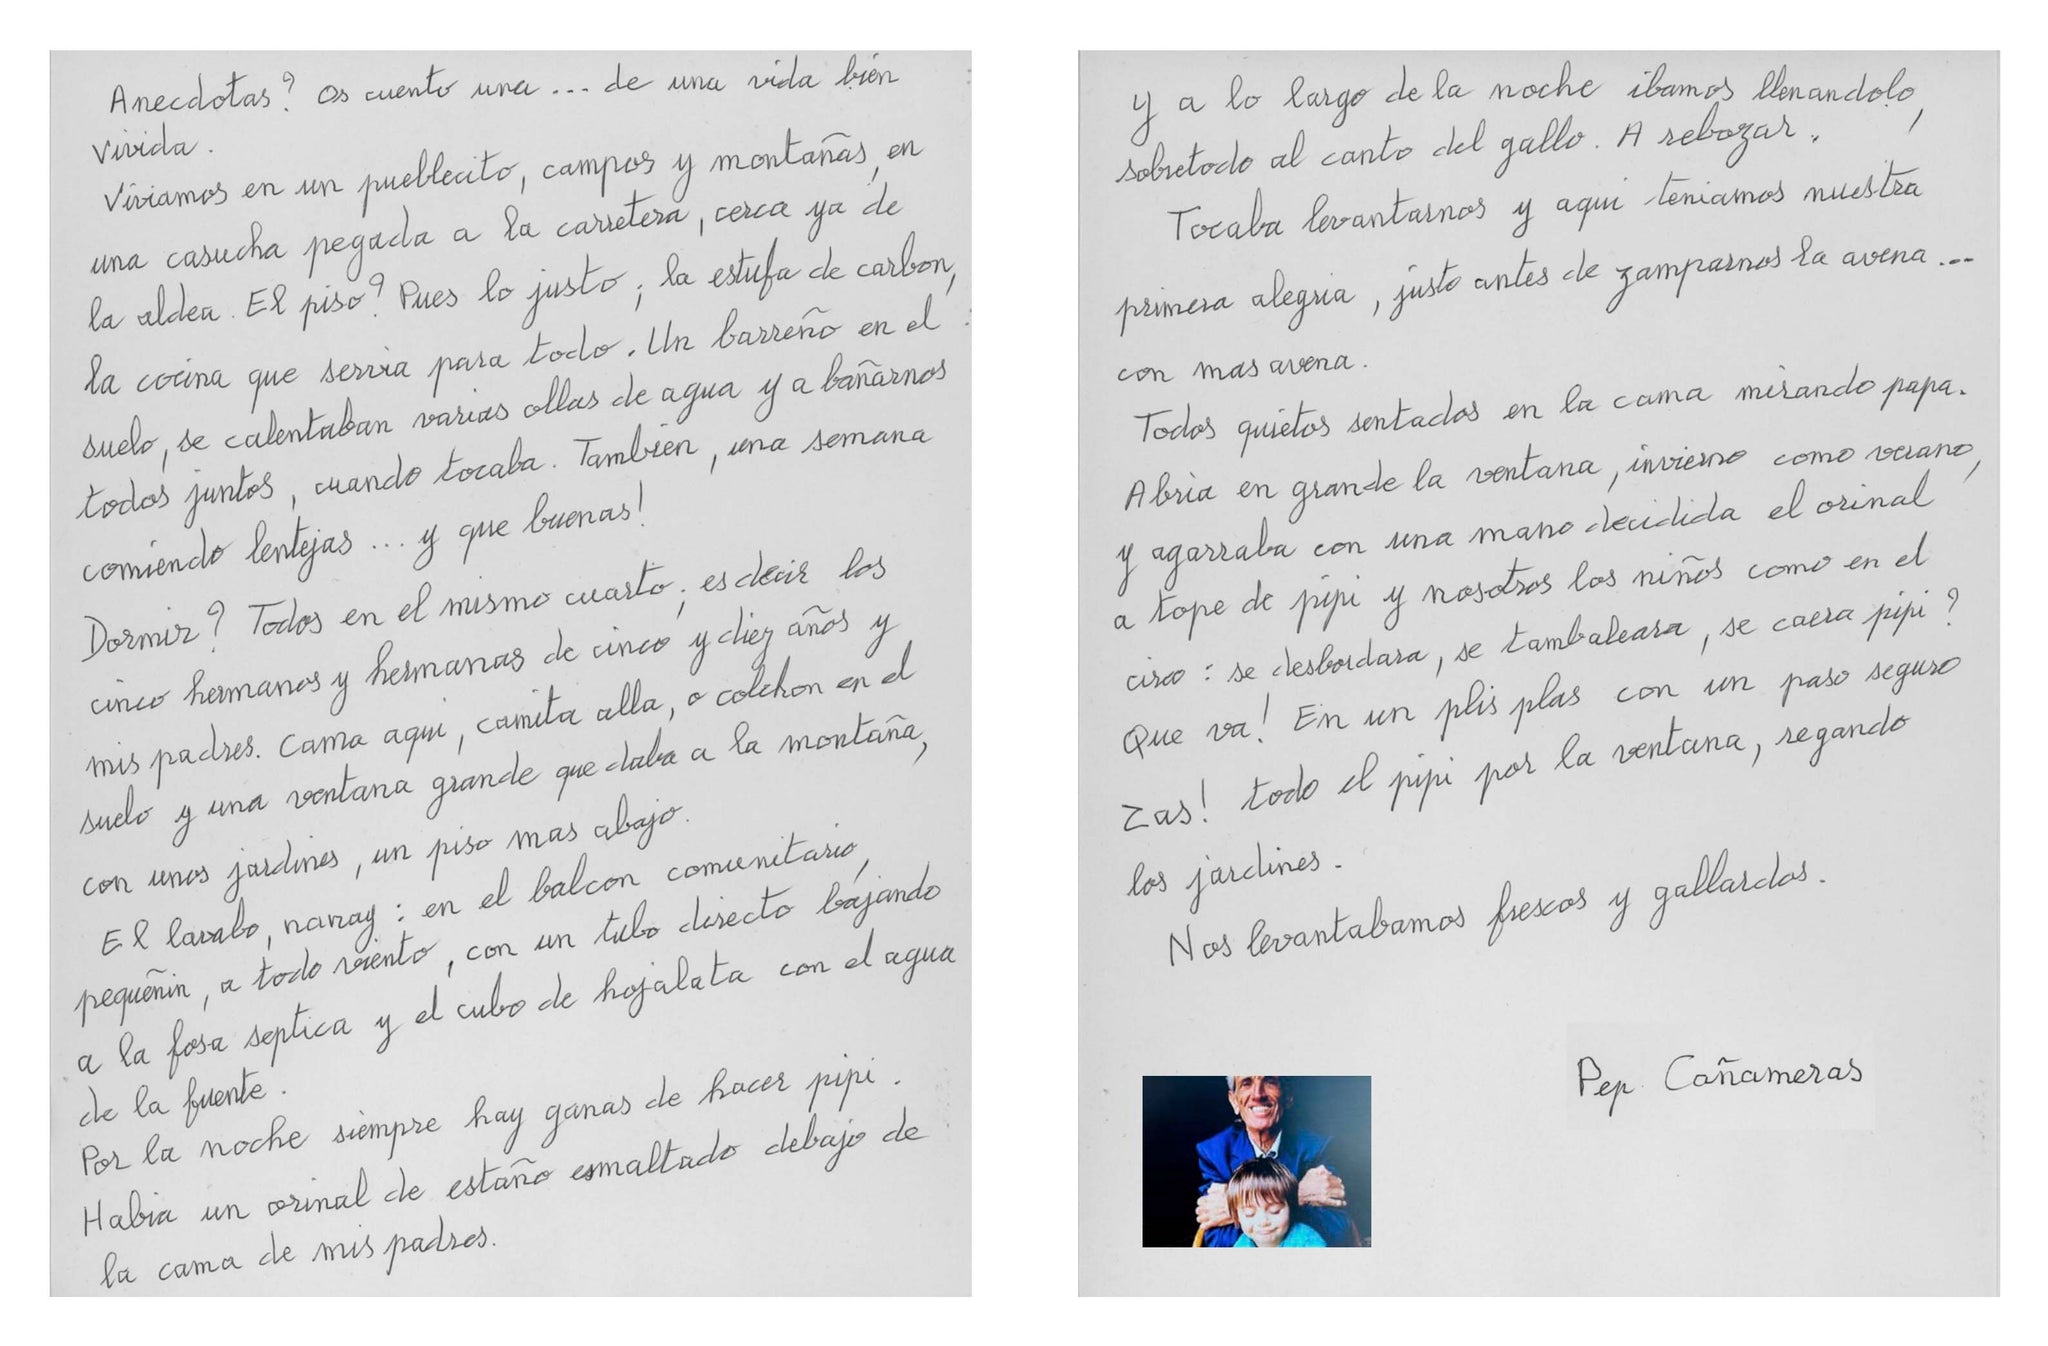 Anecdotas? Os cuento una ... de una vida bien
vivida.
Viviamos en un pueblecito, campos y montañas, en
una casucha pegada a la carretera, cerca ya de
la aldea. El piso? Pues lo justo; la estufa de carbon,
la cocina que servia para todo. Un barreño en el
suelo, se calentaban varias ollas de agua y a bañarnos
todos juntos, cuando tocaba. Tambien, una semana
comiendo lentejas ... y que buenas!
Dormir? Todos en el mismo cuarto; es decir los
cinco hermanos y hermanas de cinco y diez años y
mis padres. Cama aqui, camita alla, o colchon en el
suelo y una ventana grande que daba a la montaña,
con unos jardines, un piso mas abajo.
El lavabo, nanay: en el balcon comunitario,
pequeñin, a todo viento, con un tubo directo bajando
a la fosa septica y el cubo de hojalata con el agua
de la fuente.
Por la noche siempre hay ganas de hacer pipi.
Habia un orinal de estaño esmaltado debajo de
la cama de mis padres.
Y a lo largo de la noche ibamos llenandolo,
sobretodo al canto del gallo. A rebozar.
Tocaba levantarnos y aqui teniamos nuestra
primera alegria, justo antes de zamparnos la avena ...
con mas avena.
Todos quietos sentados en la cama mirando papa.
Abria en grande la ventana, invierno como verano,
y agarraba con una mano decidida el orinal
a tope de pipi y nosotros los niños como en el
circo: se desbordara, se tambaleara, se caera pipi?
Que va! En un plis plas con un paso seguro
Zas! todo el pipi por la ventana, regando
los jardines.
Nos levantabamos frescos y gallardos.
Pep Cañameras